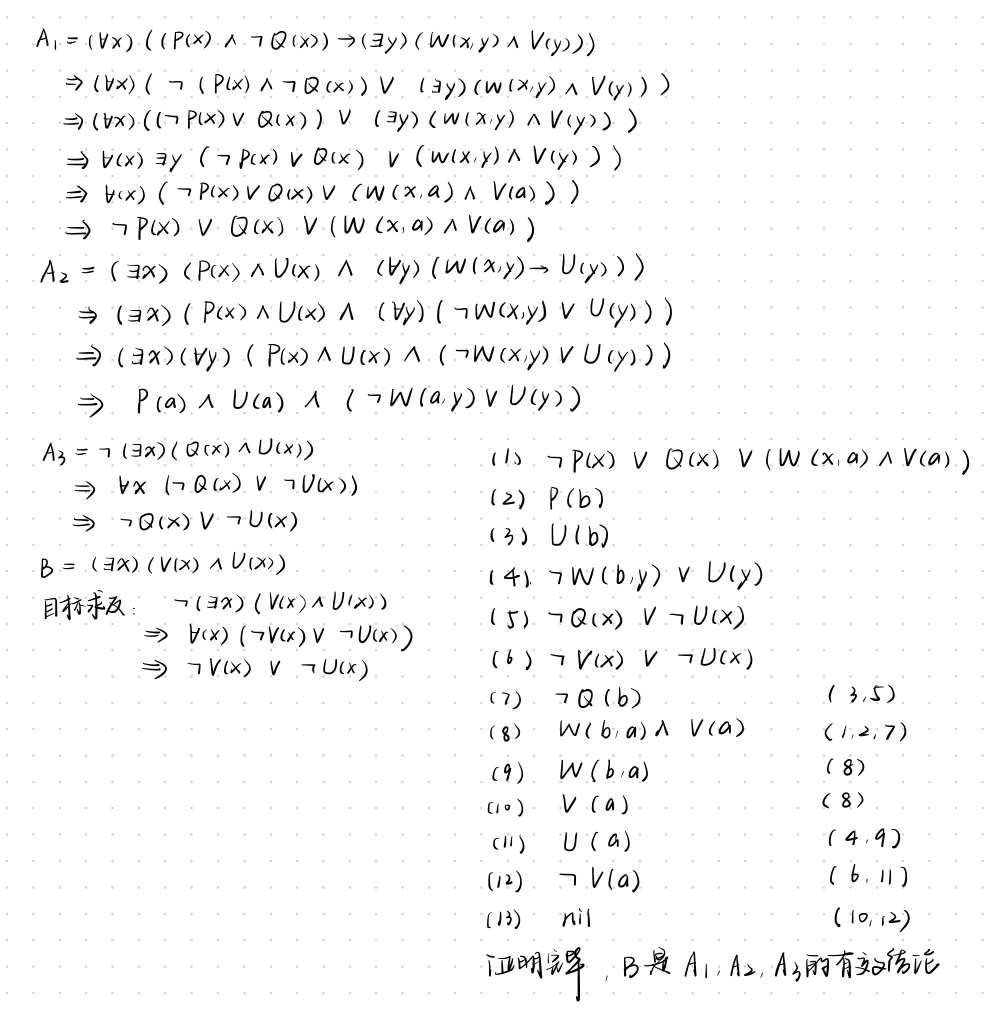 A₁ = (∀x) ((P(x) ∧ ¬Q(x)) → (∃y) (W(x,y) ∧ V(y)))
⇒ (∀x) ( ¬ (P(x) ∧ ¬Q(x)) ∨ (∃y) (W(x,y) ∧ V(y)) )
⇒ (∀x) ((¬P(x) ∨ Q(x)) ∨ (∃y) (W(x,y) ∧ V(y)) )
⇒ ∀(x) ∃y (¬P(x) ∨ Q(x) ∨ (W(x,y) ∧ V(y)))
⇒ ∀(x) (¬P(x) ∨ Q(x) ∨ (W(x,a) ∧ V(a)))
⇒ ¬P(x) ∨ Q(x) ∨ (W(x,a) ∧ V(a))
A₂ = (∃x) (P(x) ∧ U(x) ∧ (∀y) (W(x,y) → U(y)))
⇒ (∃x) (P(x) ∧ U(x) ∧ (∀y) (¬W(x,y) ∨ U(y)))
⇒ (∃x) (∀y) (P(x) ∧ U(x) ∧ (¬W(x,y) ∨ U(y)))
⇒ P(a) ∧ U(a) ∧ (¬W(a,y) ∨ U(y))
A₃ = ¬(∃x) (Q(x) ∧ U(x))
⇒ ∀x (¬Q(x) ∨ ¬U(x))
⇒ ¬Q(x) ∨ ¬U(x)
B = (∃x) (V(x) ∧ U(x))
目标求反: ¬(∃x) (V(x) ∧ U(x))
⇒ ∀(x) (¬V(x) ∨ ¬U(x))
⇒ ¬V(x) ∨ ¬U(x)
(1) ¬P(x) ∨ Q(x) ∨ (W(x,a) ∧ V(a))
(2) P(b)
(3) U(b)
(4) ¬W(b,y) ∨ U(y)
(5) ¬Q(x) ∨ ¬U(x)
(6) ¬V(x) ∨ ¬U(x)
(7) ¬Q(b) (3,5)
(8) W(b,a) ∧ V(a) (1,2,7)
(9) W(b,a) (8)
(10) V(a) (8)
(11) U(a) (4,9)
(12) ¬V(a) (6,11)
(13) nil (10,12)
证明完毕, B是A₁,A₂,A₃的有效结论